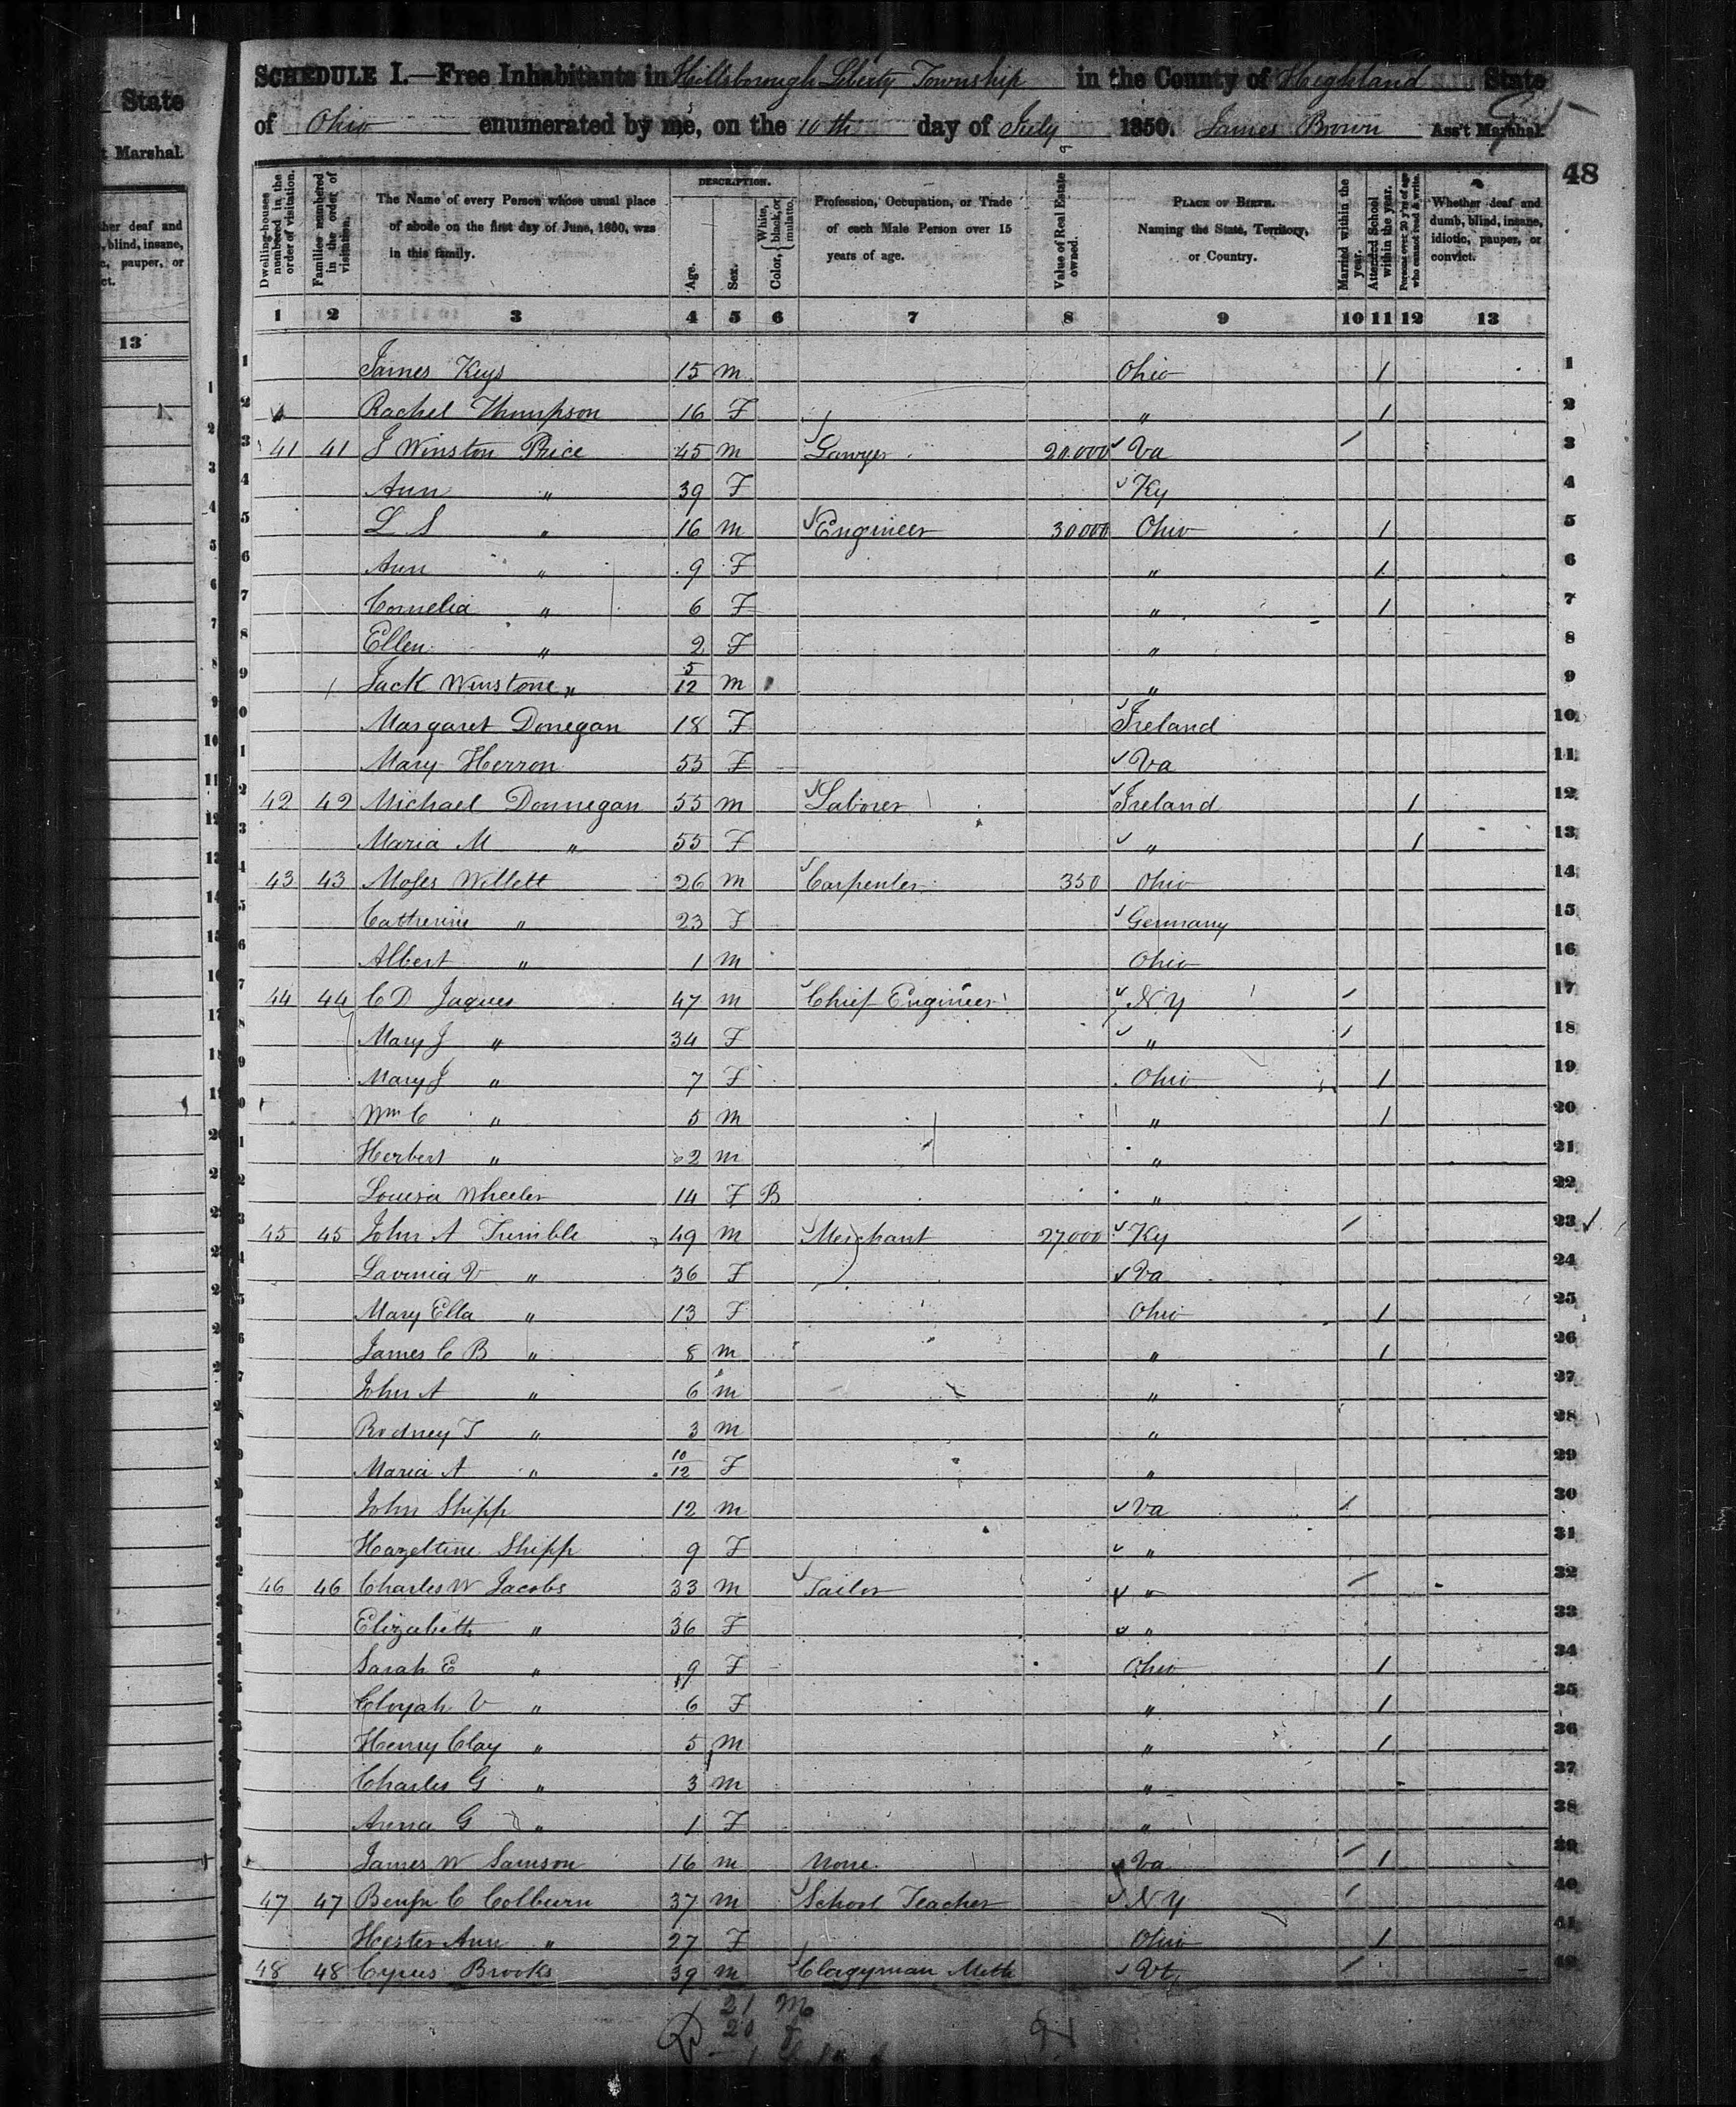 State
t Marshal.
her deaf and
, blind, insane,
c, pauper, or
ct.
13
SCHEDULE I.—Free Inhabitants in Hillsborough Liberty Township in the County of Highland State
of Ohio enumerated by me, on the 10th day of July 1850. James Brown Ass't Marshal.
48
Dwelling-houses numbered in the order of visitation.
Families numbered in the order of visitation.
The Name of every Person whose usual place of abode on the first day of June, 1850, was in this family.
DESCRIPTION.
Age.
Sex.
Color, { White, black, or mulatto.
Profession, Occupation, or Trade of each Male Person over 15 years of age.
Value of Real Estate owned.
PLACE OF BIRTH. Naming the State, Territory, or Country.
Married within the year.
Attended School within the year.
Persons over 20 y'rs of age who cannot read & write.
Whether deaf and dumb, blind, insane, idiotic, pauper, or convict.
1 2 3 4 5 6 7 8 9 10 11 12 13
1 James Keys 15 m Ohio 1 1
2 Rachel Thompson 16 F " 1 2
3 41 41 J Winston Price 45 m Lawyer 20.000 Va / 3
4 Ann " 39 F Ky 4
5 L S " 16 m Engineer 30000 Ohio 1 5
6 Ann " 9 F " 1 6
7 Cornelia " 6 F " 1 7
8 Ellen " 2 F " 8
9 Jack Winstone " 5/12 m " 9
0 Margaret Donegan 18 F Ireland 10
1 Mary Herron 55 F Va 11
2 42 42 Michael Donnegan 55 m Laborer Ireland 1 12
3 Maria M " 55 F " 1 13
4 43 43 Moses Willett 26 m Carpenter 350 Ohio 14
5 Catherine " 23 F Germany 15
6 Albert " 1 m Ohio 16
7 44 44 C D Jaques 47 m Chief Engineer N Y / 17
8 Mary J " 34 F " / 18
9 Mary J " 7 F Ohio 1 19
0 Wm C " 5 m " 1 20
1 Herbert " 2 m " 21
2 Louisa Wheeler 14 F B " 22
3 45 45 John A Trimble 49 m Merchant 27000 Ky / 23
Lavinia V " 36 F Va 24
5 Mary Ella " 13 F Ohio 1 25
6 James C B " 8 m " 1 26
7 John A " 6 m " 27
Rodney T " 3 m " 28
9 Maria A " 10/12 F " 29
John Shipp 12 m Va / 30
Hazeltine Shipp 9 F " 31
46 46 Charles W Jacobs 33 m Tailor " / 32
Elizabeth " 36 F " 33
Sarah E " 9 F Ohio 1 34
V " 6 F " 1 35
Henry Clay " 5 m " 1 36
Charles G " 3 m " 37
G " 1 F " 38
James W Samson 16 m None Va / 1 39
47 47 Benjn C Colburn 37 m School Teacher N Y / 40
Hester Ann " 27 F Ohio 1 41
48 48 Cyrus Brooks 39 m Clagyman Meth Vt / 42
21 M
20 F